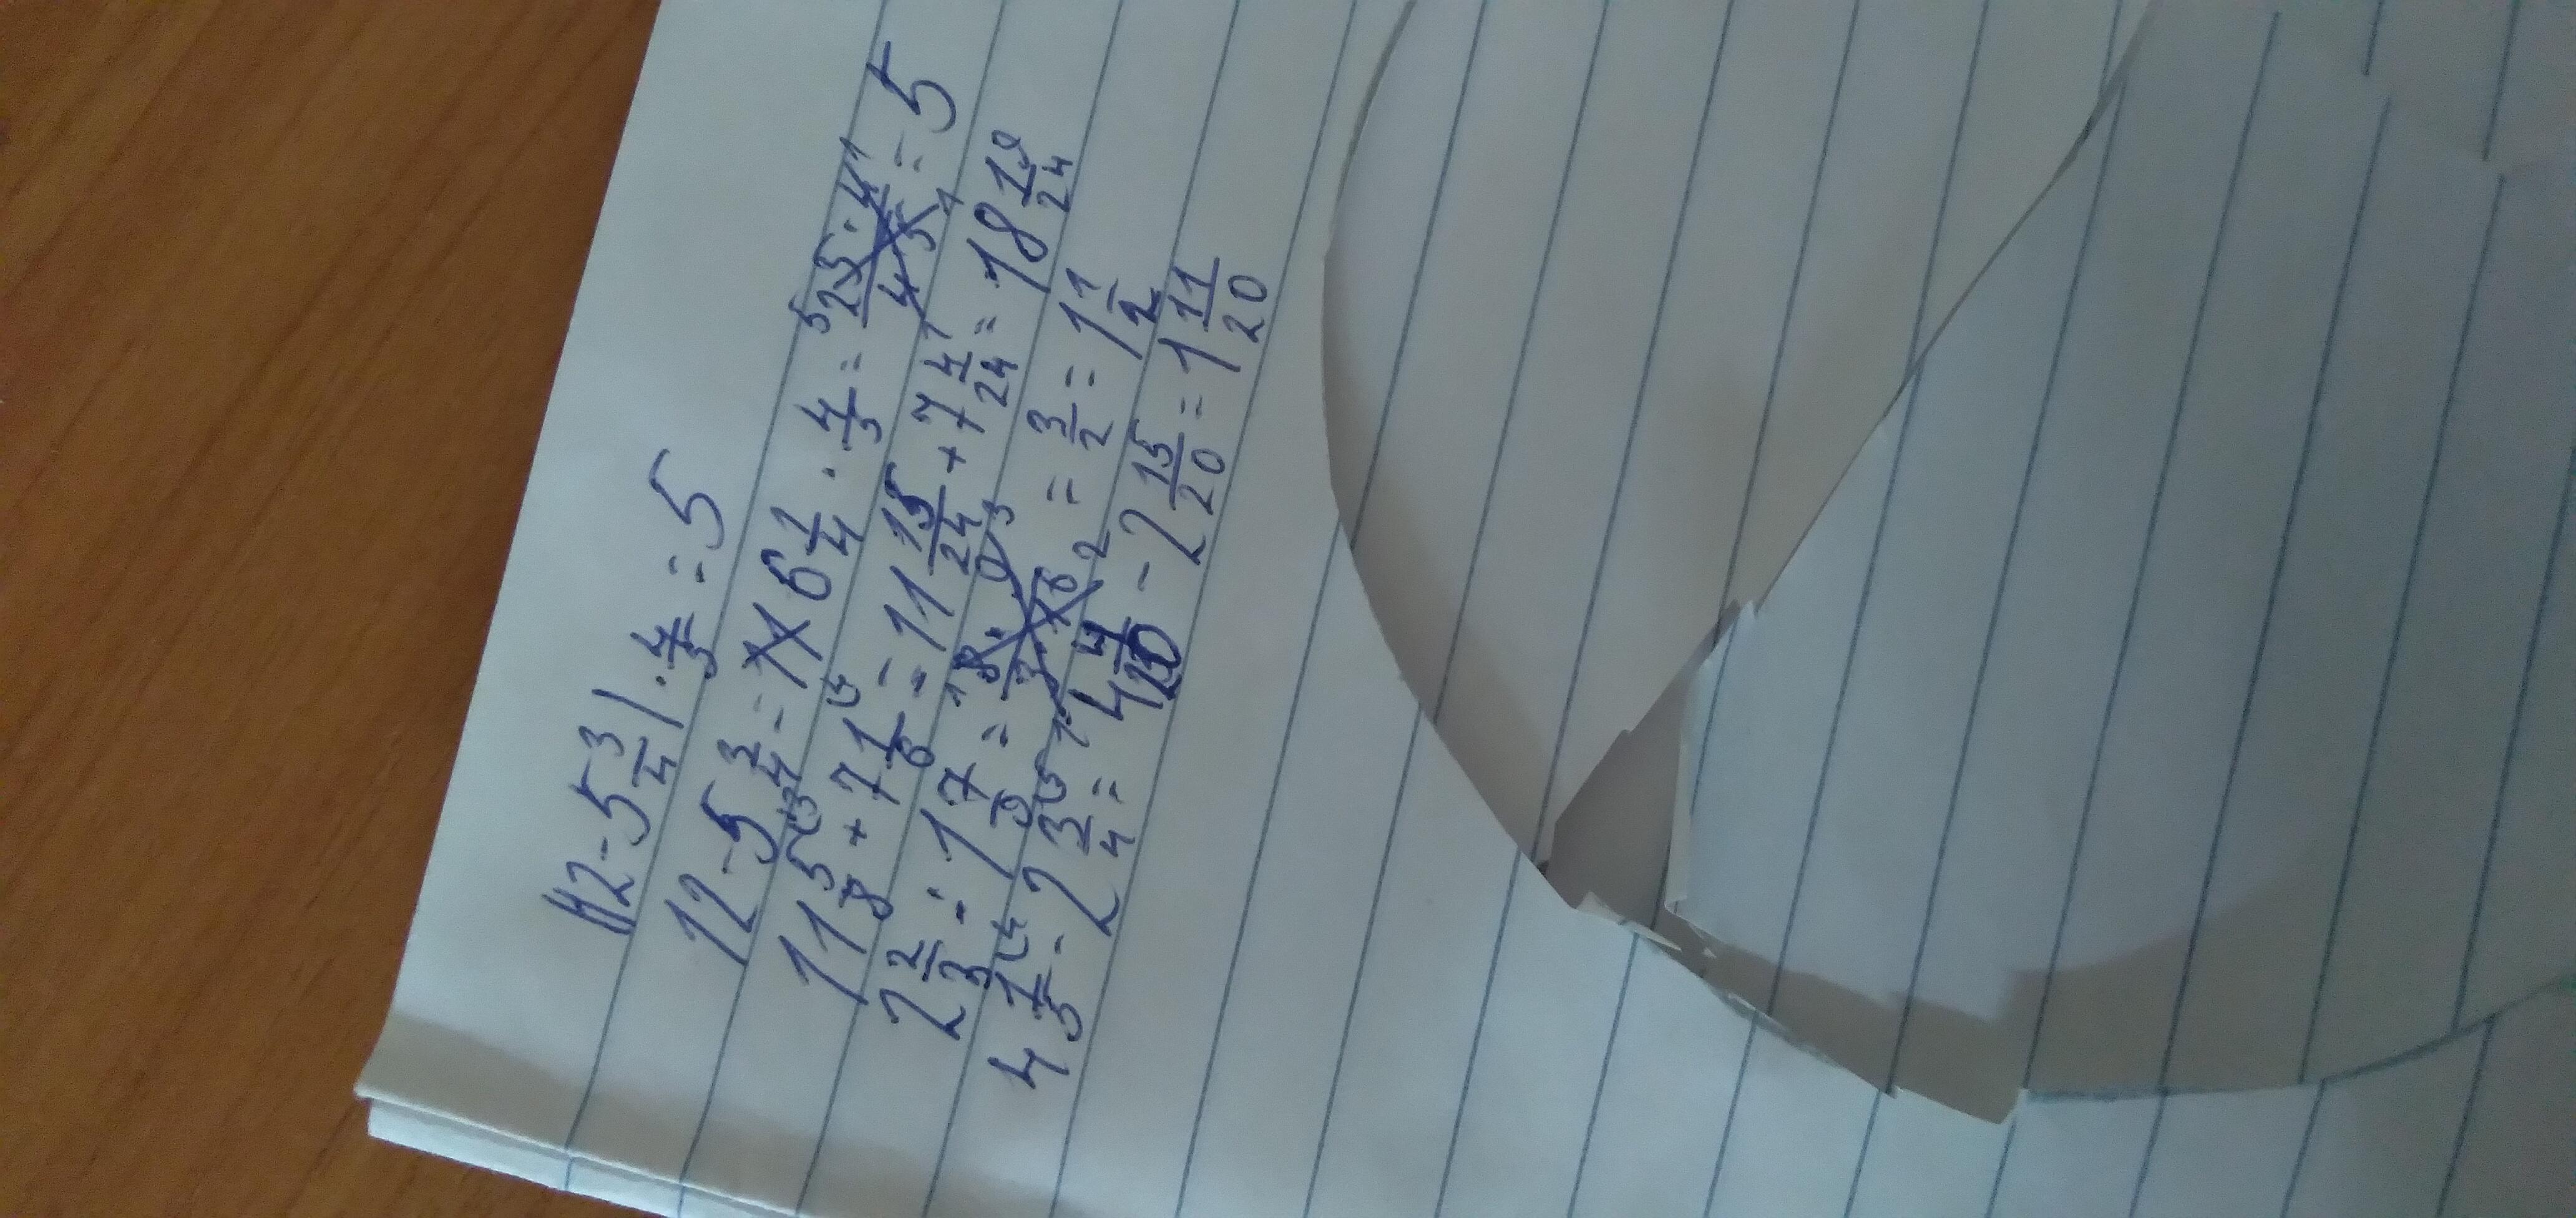 12 - 5 3/4) · 4/5 = 5
12 - 5 3/4 = 6 1/4 · 4/5 = 25 · 4 / 4 · 5 = 5
11 5/8 + 7 1/6 = 11 15/24 + 7 4/24 = 18 19/24
2 2/3 : 1 7/9 = 8 · 9 / 3 · 16 = 3/2 = 1 1/2
4 1/5 - 2 3/4 = 4 4/20 - 2 15/20 = 1 11/20